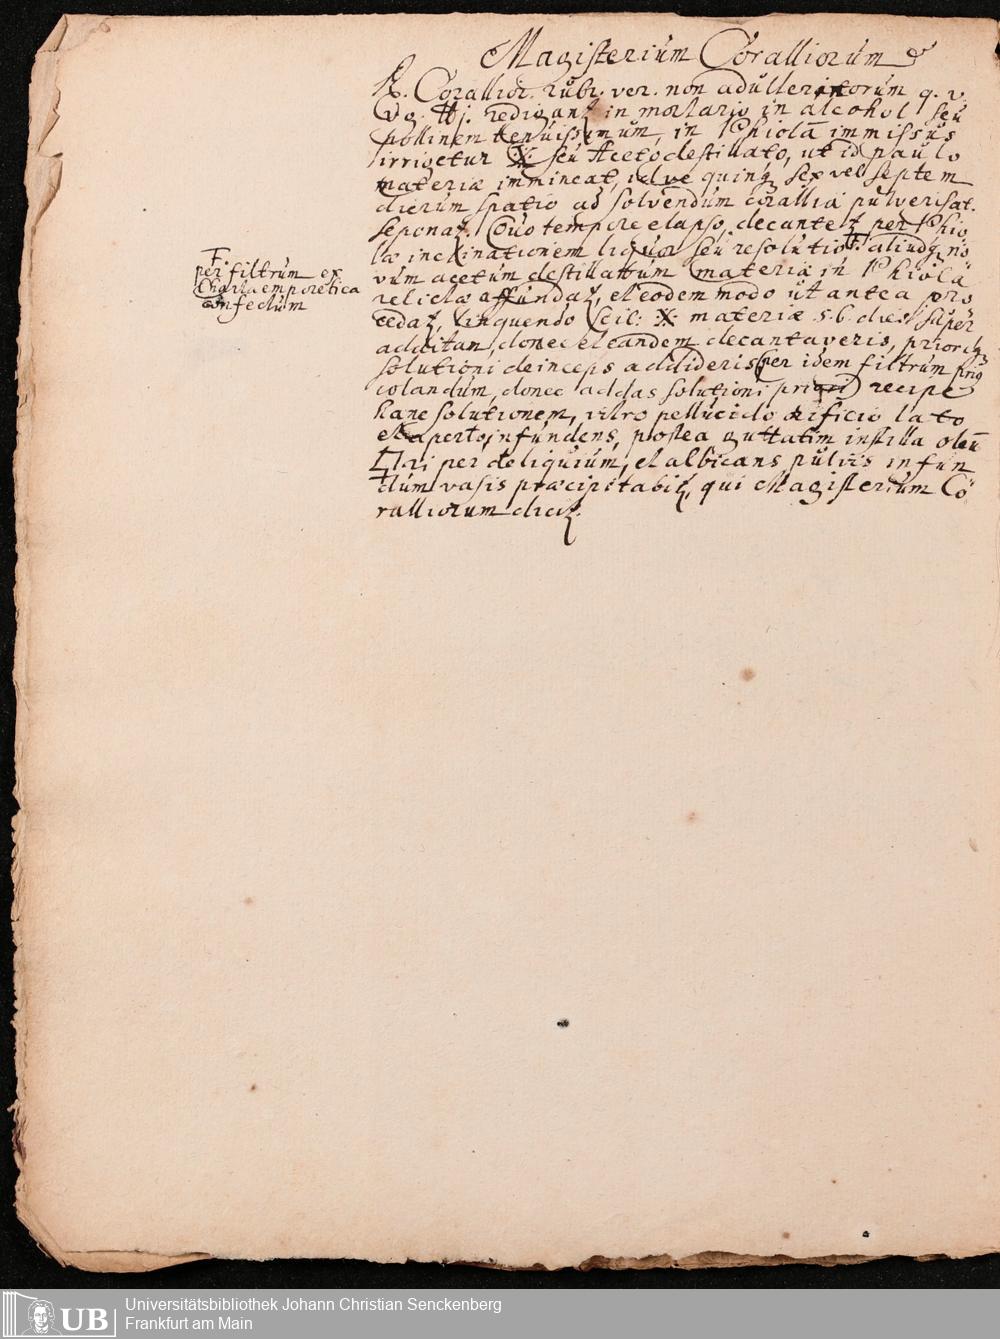 Magisterium Coralliorum
℞. Corallior. rubr. ver. non adulterinorum q. v.
Vg. ℔j. redigant in mortario in alcohol seu
pollinem tenuissimum, in Phiolā immissus
irrigetur seu Aceto destillato, ut id paulo
materiæ immineat, idve quinq sex vel septem
dierum spatio ad solvendum corallia pulverisat.
seponatz. Quo tempore elapso decantetz per Phio
læ inclinationem liquor seu resolutio aliudq no
vum acetum destillattum materiæ in Phiolā
relictæ affundatz, et eodem modo ut antea pro
cedatz, linquendo scil: .X. materiæ 5. 6. dies super
additam, donec et eandem decantaveris, priorq
solutioni deinceps addideris per idem filtrum prius
colandum, donec addas solutioni priori recipe
hanc solutionem, vitro pellucido orificio lato
et aperto infundens, postea guttatim instilla oleū
🜿ri per deliquium, et albicans pulvis in fun
dum vasis præcipitabitz, qui Magisterium Co
ralliorum dicitz.
F.
per filtrum ex
Charta emporetica
confectum
Universitätsbibliothek Johann Christian Senckenberg
Frankfurt am Main
UB